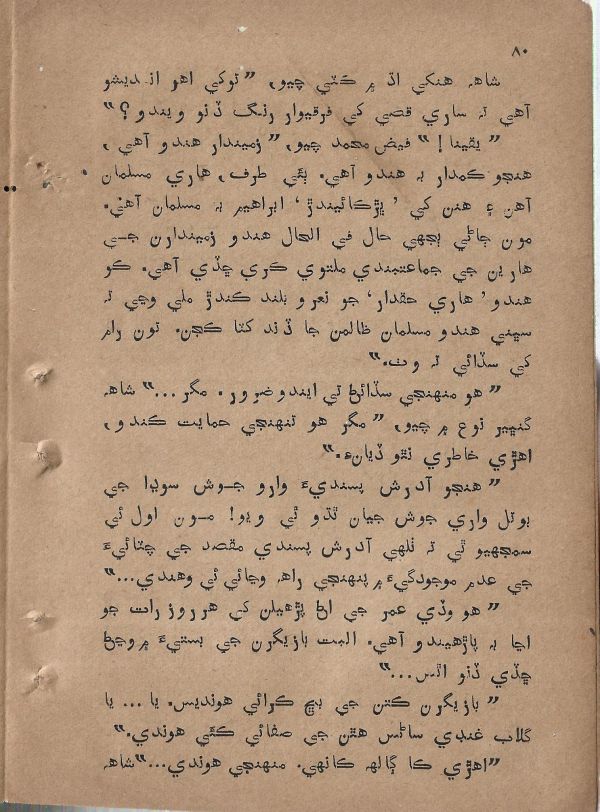 ٨٠
شاهہ هنکي اڌ ۾ ڪٽي چيو، ”توکي اهو انديشو
آهي تہ ساري قصي کي فرقيوار رنگ ڏنو ويندو؟“
”يقينا!“ فيض محمد چيو، ”زميندار هندو آهي،
هنجو ڪمدار بہ هندو آهي. ٻئي طرف، هاري مسلمان
آهن ۽ هنن کي ’ڀڙڪائيندڙ‘ ابراهيم بہ مسلمان آهي.
مون ڄاڻي ٻجهي حال في الحال هندو زميندارن جي
هارين جي جماعتبندي ملتوي ڪري ڇڏي آهي. ڪو
هندو ’هاري حقدار‘ جو نعرو بلند ڪندڙ ملي وڃي تہ
سڀني هندو مسلمان ظالمن جا ڏند کٽا ڪجن. تون رام
کي سڏائي تہ وٺ.“
”هو منهنجي سڏائڻ تي ايندو ضرور. مگر...“ شاهہ
گنڀير نوع ۾ چيو، ”مگر هو تنهنجي حمايت ڪندو،
اهڙي خاطري نٿو ڏيان۽.“
”هنجو آدرش پسنديءَ وارو جوش سوڊا جي
بوتل واري جوش جيان ٿڌو ٿي ويو! مون اول ئي
سمجهيو ٿي تہ ٺلهي آدرش پسندي مقصد جي چٽائيءَ
جي عدم موجودگيءَ ۾ پنهنجي راهہ وڃائي ئي وهندي...“
”هو وڏي عمر جي اڻ پڙهيلن کي هر روز رات جو
اڃا بہ پاڙهيندو آهي. البت بازيگرن جي بستيءَ ۾ وڃڻ
ڇڏي ڏنو اٿس...“
”بازيگرن ڪتن جي بڇ ڪرائي هونديس. يا... يا
گلاب غنڊي ساڻس هٿن جي صفائي ڪئي هوندي.“
”اهڙي ڪا ڳالهہ ڪانهي. منهنجي هوندي...“ شاهہ